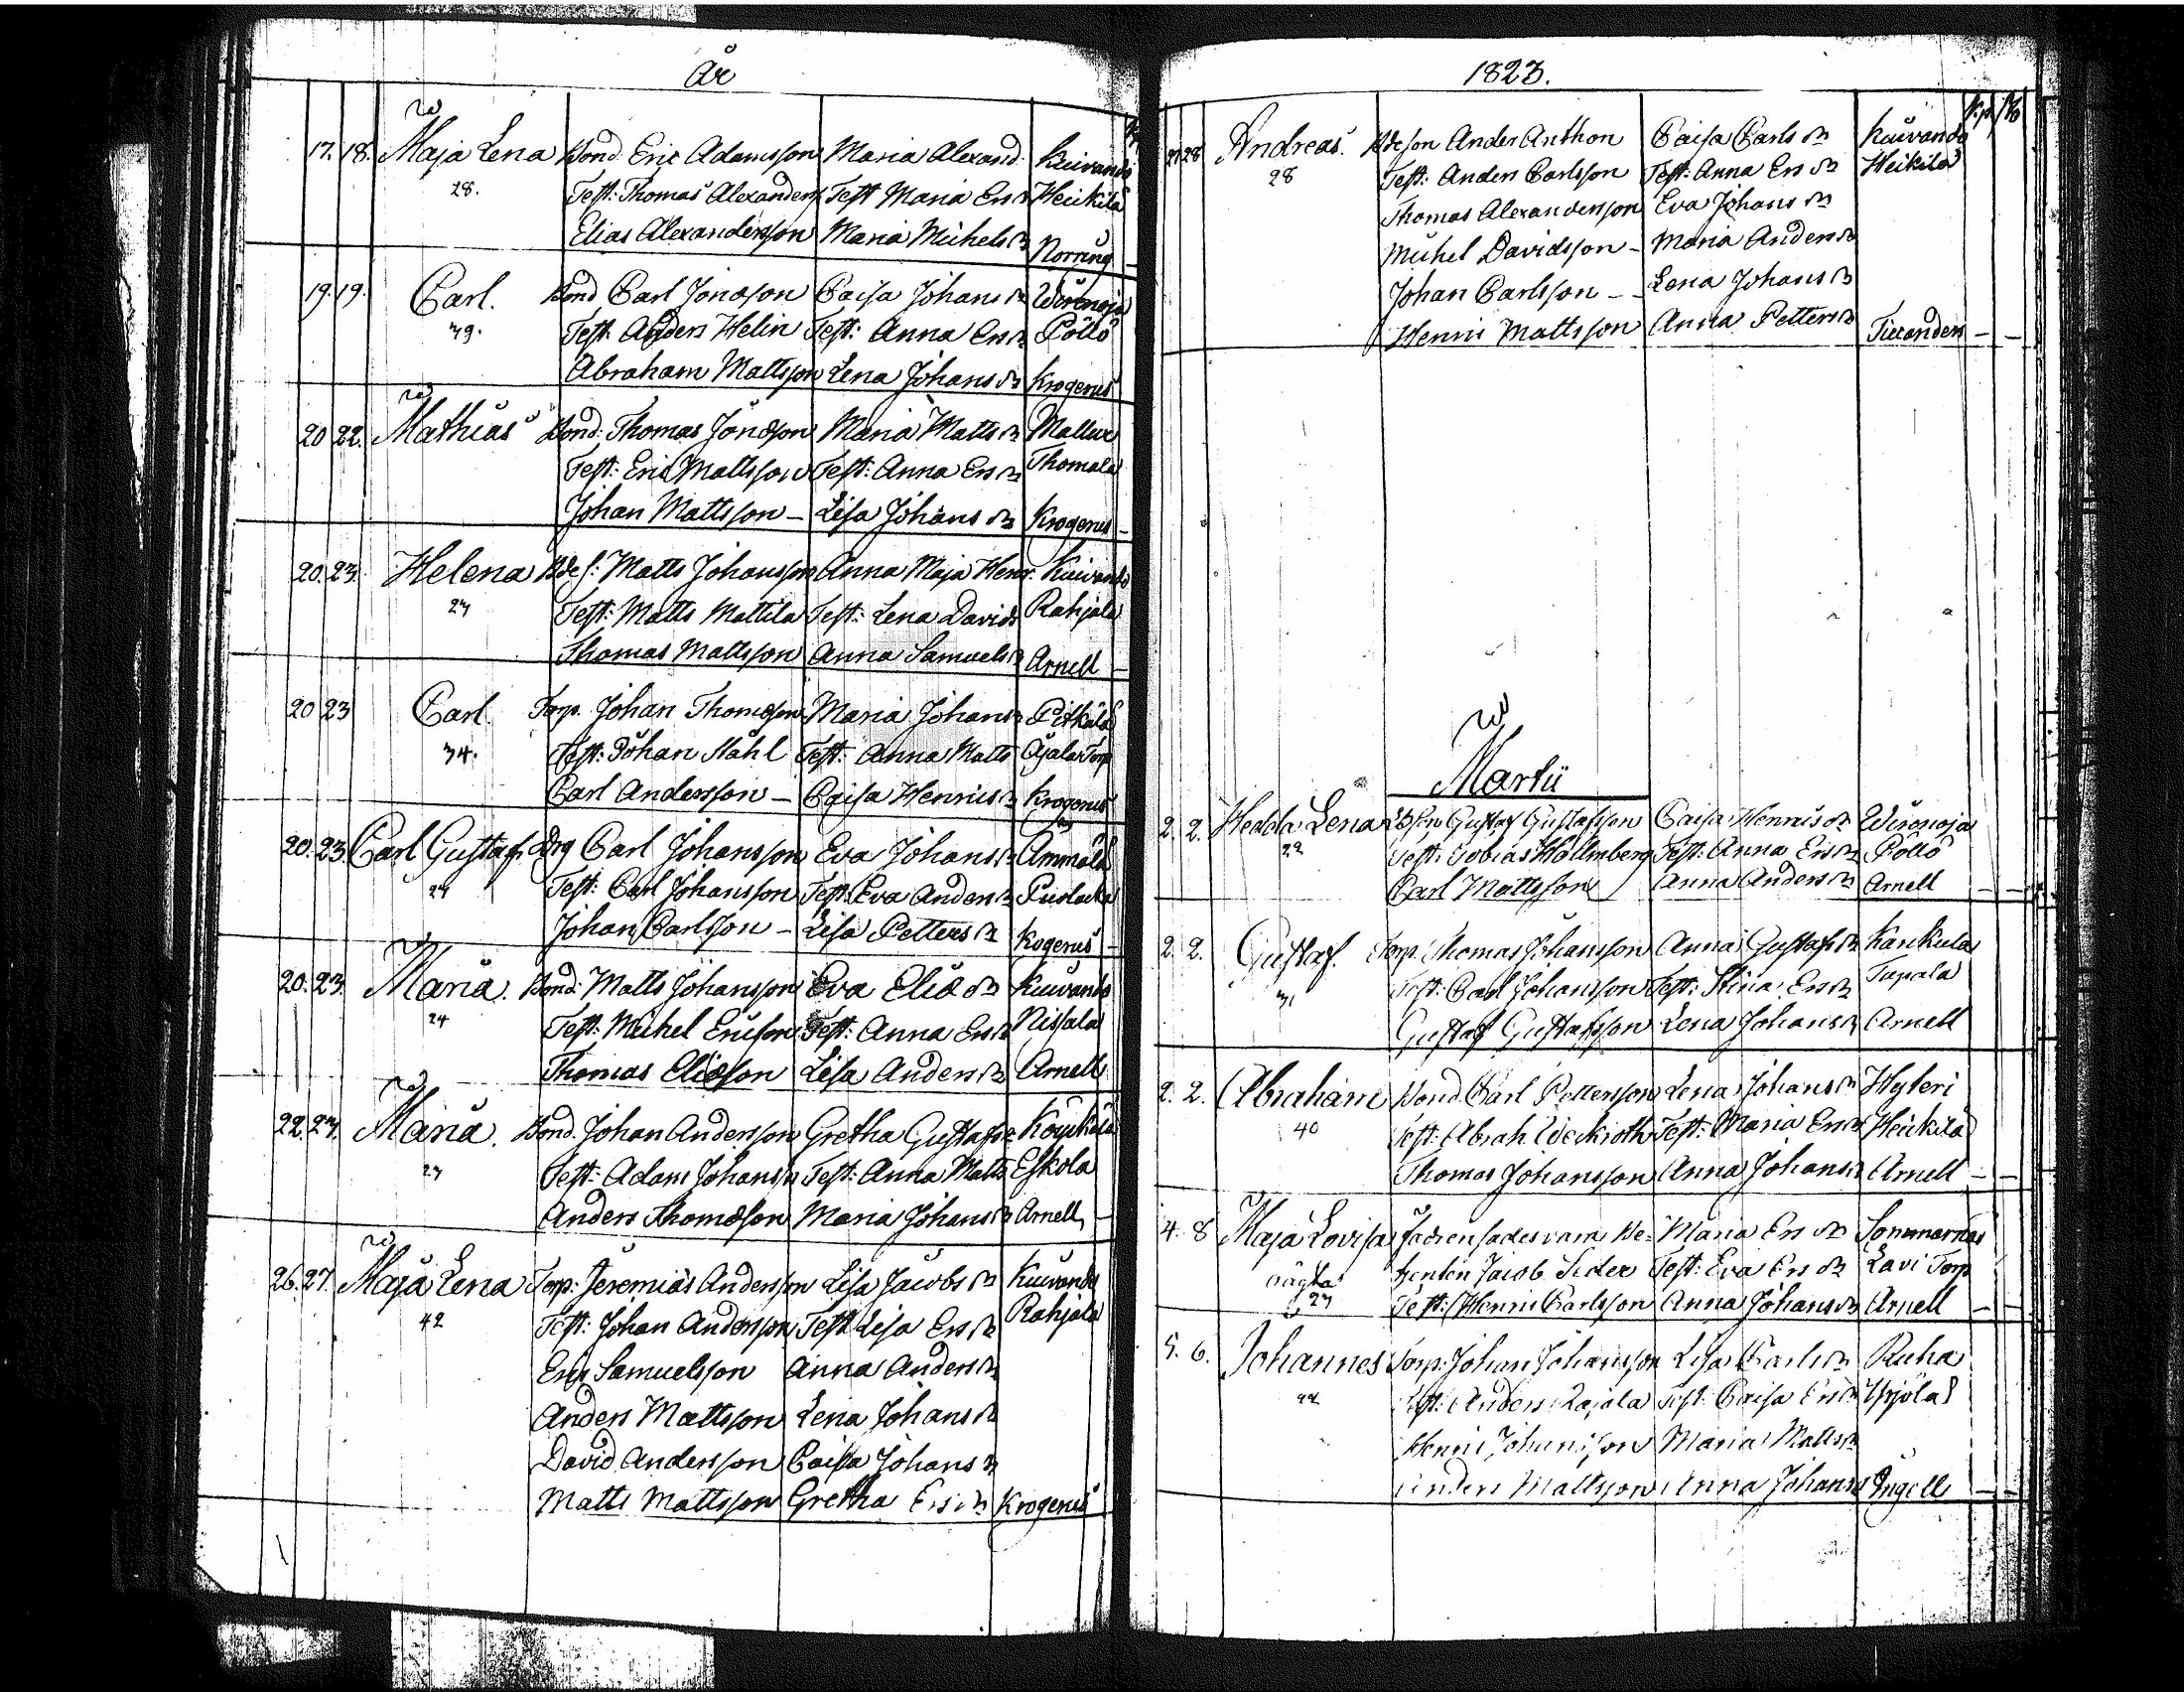 År
17. 18. Maja Lena Bond. Eric Adamsson Maria Alexand. Kuivando
28. Test: Thomas Alexanders Test Maria Ers dr Heickilä
Elias Alexandersson Maria Michels dr Norring
19. 19. Carl. Bond Carl Jönsson Caisa Johans dr Wirmoja
39. Test. Anders Helin Test: Anna Ers dr Pöllö
Abraham Mattsson Lena Johans dr Krogerus
20 22. Mathias Bond. Thomas Jönsson Maria Matts dr
Test: Eric Mattsson Test: Anna Ers dr Thomala
Johan Mattsson Lisa Johans dr Krogerus
20. 23. Helena Bde s: Matts Johansson Anna Maja Henr. Kuivando
Test: Matts Mattila Test: Lena Davids Rahjala
Thomas Mattsson Anna Samuels dr Arnell
20 23 Carl. Torp. Johan Thomsson Maria Johans dr Pitkälä
34. Test: Johan Ståhl Test: Anna Matts Torp
Carl Andersson Caisa Henrics dr Krogerus
20. 23. Carl Gustaf Carl Johansson Eva Johans dr Ammälä
Test: Carl Johansson Test: Eva Anders dr
Johan Carlsson Lisa Petters dr Kogerus
20. 23. Maria. Bond. Matts Johansson Eva Elis dr Kuivando
24 Test: Michel Ericson Test: Anna Ers dr Nissala
Thomas Elisson Lisa Anders dr Arnell
22. 23. Maria. Bond. Johan Andersson Gretha Gustafs dr
Test: Adam Johanss Test: Anna Matts Eskola
Anders Thomsson Maria Johans dr Arnell
26. 27. Maja Lena Torp: Jeremias Andersson Lisa Jacobs dr Kuivando
42 Test: Johan Andersson Test Lisa Ers dr Rahjala
Eric Samuelsson Anna Anders dr
Anders Mattsson Lena Johans dr
David Andersson Caisa Johans dr
Matts Mattsson Gretha Ers dr Krogerus
1823.
27 28 Andreas. Bdeson Ander Anthon Caisa Carls dr Kuivando
28 Test: Anders Carlsson Test: Anna Ers dr Heikilä
Thomas Alexandersson Eva Johans dr
Michel Davidsson Maria Anders dr
Johan Carlsson Lena Johans dr
Henric Mattsson Anna Petters dr
Martii
2. 2. Hedda Lena Gustaf Gustafsson Caisa Henrics dr Wirmoja
22 Test: Tobias Hollmberg Test: Anna Ers dr Pöllö
Carl Mattsson Anna Anders dr Arnell
2 2. Gustaf. Torp. Thomas Johansson Anna Gustafs dr Karikula
31 Test: Carl Johansson Test: Stina Ers dr Tapala
Gustaf Gustafsson Lena Johans dr Arnell
2. 2. Abraham Bond. Carl Pettersson Lena Johans dr Hyleri
40 Test: Abrah Weckroth Test: Maria Ers dr Heickilä
Thomas Johansson Anna Johans dr Arnell
4. 8 Maja Lovisa Maria Ers dr Sommarnäs
oägta Jacob Test: Eva Ers dr Lavi Torp
Test: Henric Carlsson Anna Johans dr Arnell
5. 6. Johannes Torp: Johan Johansson Lisa Carls dr Ruha
Test: Anders Rajala Test: Caisa Ers dr Yrjölä
Henric Johansson Maria Matts dr
Anders Mattsson Anna Johans Ingell